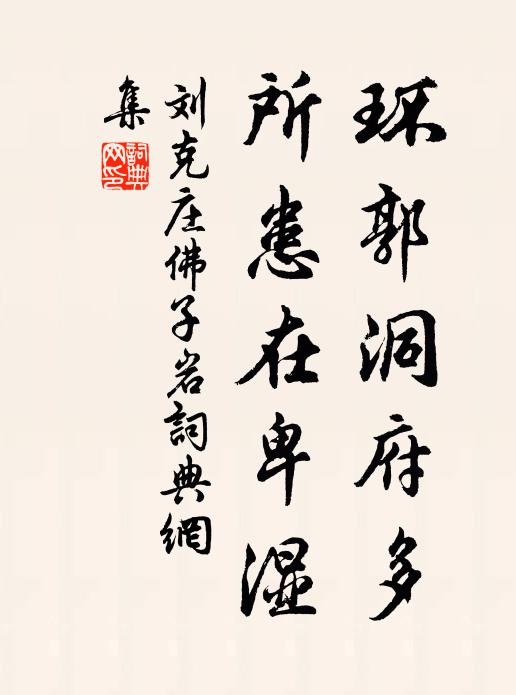 环郭洞府多
所患在卑湿
刘克庄佛子岩詞典網
集
詞典
网印